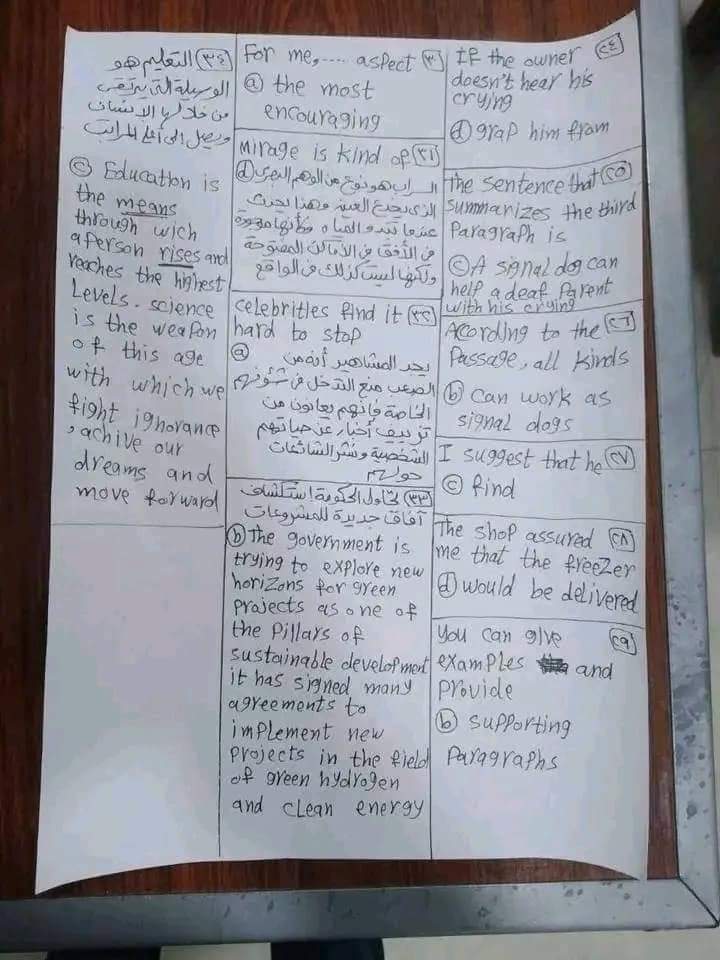 ٢٤ IF the owner
doesn't hear his
crying
ⓓ grap him from
٢٥ The sentence that
summarizes the third
Paragraph is
ⓒ A signal dog can
help a deaf Parent
with his crying
٢٦ According to the
Passage, all kinds
ⓑ can work as
signal dogs
٢٧ I suggest that he
ⓒ find
٢٨ The shop assured
me that the freezer
ⓓ would be delivered
٢٩ you can give
examples and
Provide
ⓑ supporting
Paragraphs
٣٠ For me,.... aspect
ⓐ the most
encouraging
٣١ mirage is kind of
ⓓ السراب هو نوع من الوهم البصرى
الذى يخدع العين وهذا يحدث
عندما تبدو المياه وكأنها موجودة
فى الأفق فى الأماكن المفتوحة
ولكنها ليست كذلك فى الواقع
٣٢ celebrities find it
hard to stop
ⓐ يجد المشاهير أنه من
الصعب منع التدخل فى شئونهم
الخاصة فإنهم يعانون من
تزييف أخبار عن حياتهم
الشخصية ونشر الشائعات
حولهم
٣٣ تحاول الحكومة استكشاف
آفاق جديدة للمشروعات
ⓑ The government is
trying to explore new
horizons for green
Projects as one of
the Pillars of
sustainable development
it has signed many
agreements to
implement new
Projects in the field
of green hydrogen
and clean energy
٣٤ التعليم هو
الوسيلة التى يرتقى
من خلالها الإنسان
ويصل إلى أعلى المراتب
ⓒ Education is
the means
through wich
a person rises and
reaches the highest
Levels. science
is the weapon
of this age
with which we
fight ignorance
, achive our
dreams and
move forward